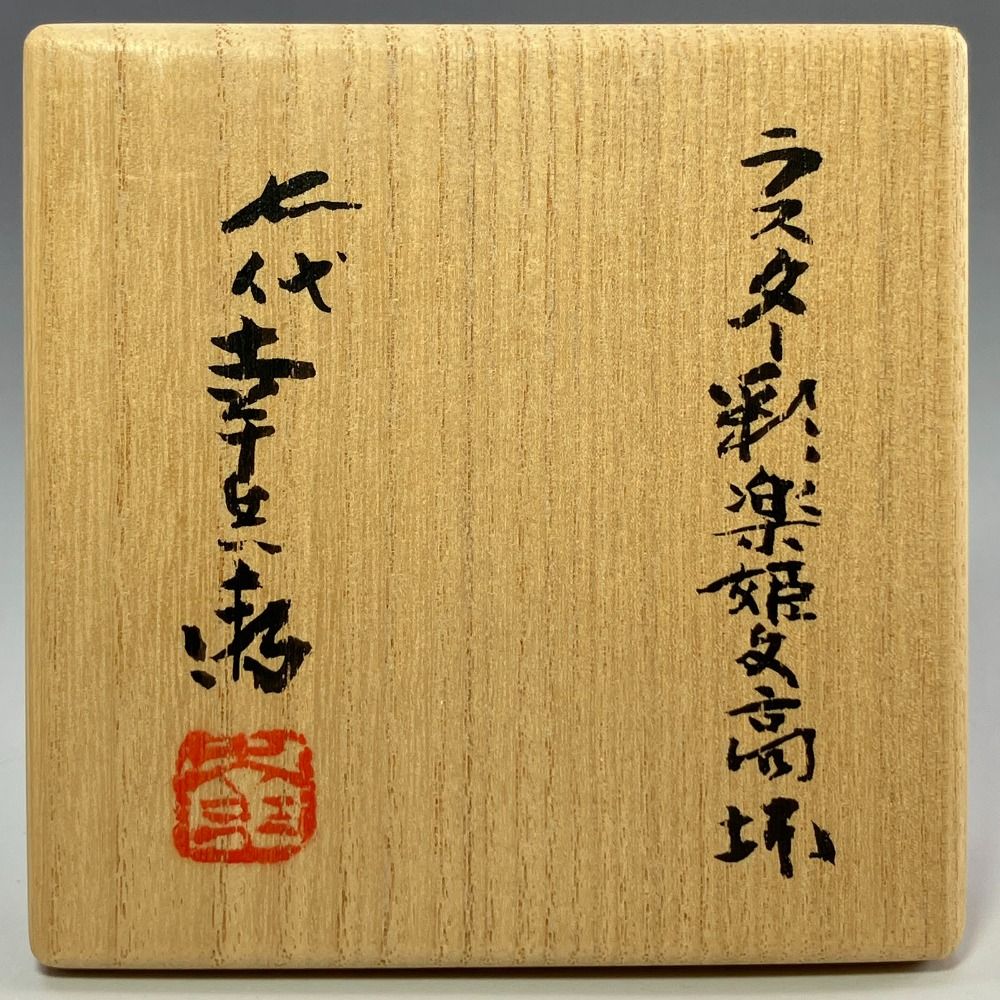 ラスター彩楽姫文高坏
七代幸兵衛